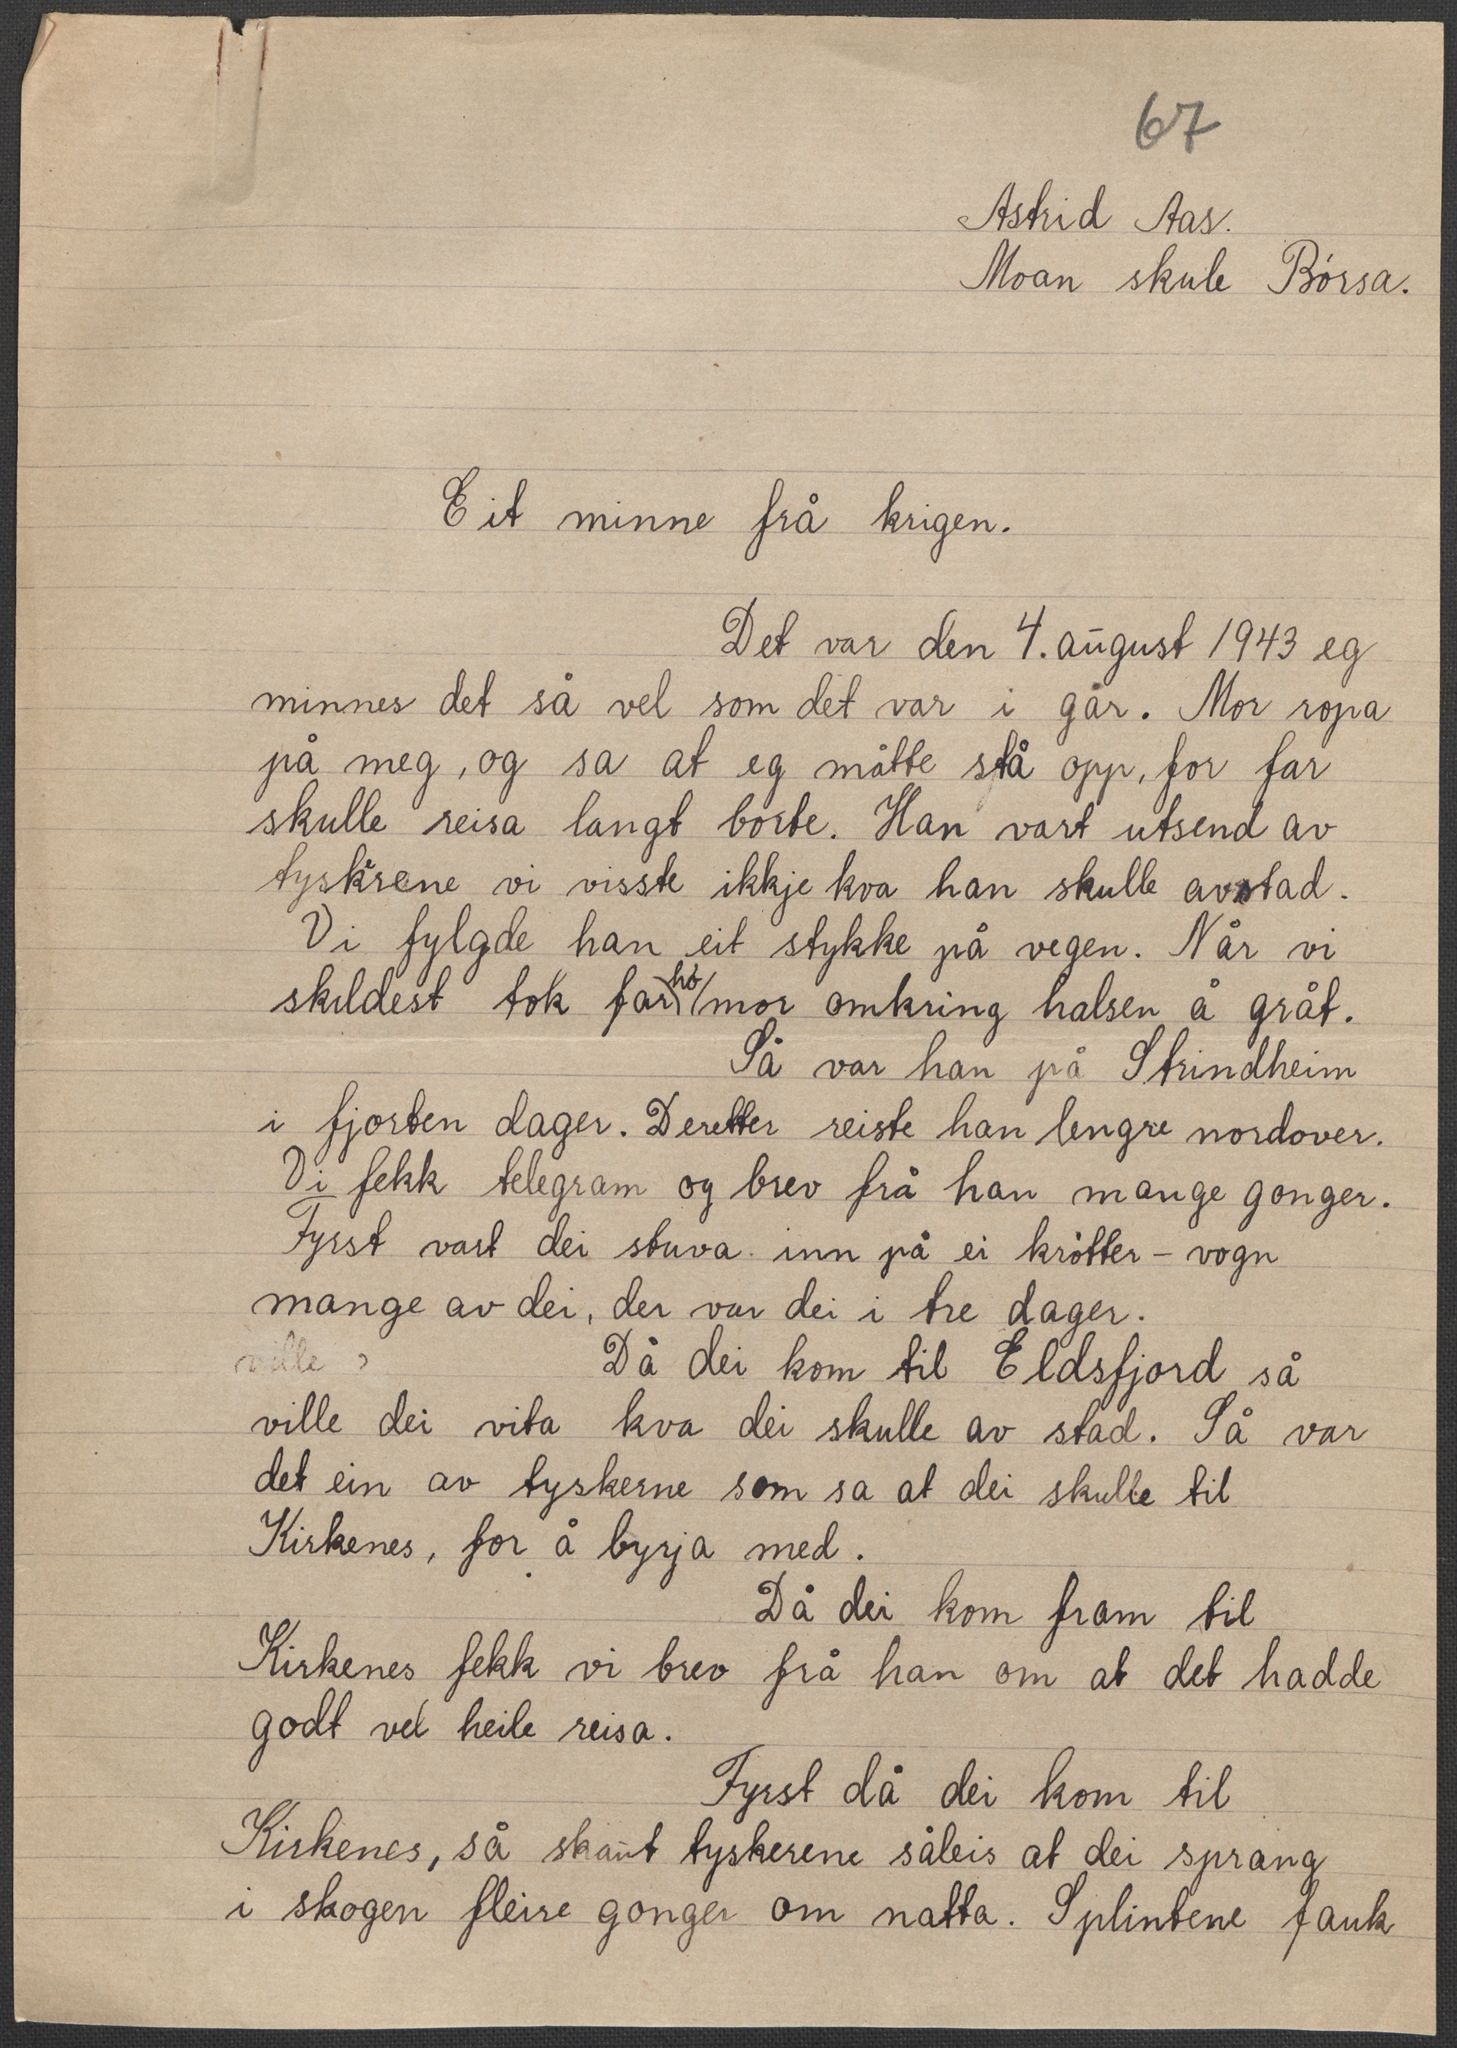 67
Astrid Aas.
Moan skule Börsa.
Eit minne frå krigen.
Det var den 4. august 1943 eg
minnes det så vel som det var i går. Mor ropa
på meg, og sa at eg måtte stå opp, for far
skulle reisa langt borte. Han vart utsend av
tyskrene vi visste ikkje kva han skulle avstad.
Vi fylgde han eit stykke på vegen. Når vi
skildest tok far ho mor omkring halsen å gråt.
Så var han på Strindheim
i fjorten dager. Deretter reiste han lengre nordover.
Vi fekk telegram og brev frå han mange gonger.
Fyrst vart dei stuva inn på ei kròtter-vogn
mange av dei, der var dei i tre dager.
ville
Då dei kom til Eldsfjord så
ville dei vita kva dei skulle av stad. Så var
det ein av tyskerne som sa at dei skulle til
Kirkenes, for å byrja med.
Då dei kom fram til
Kirkenes fekk vi brev frå han om at det hadde
godt vel heile reisa.
Fyrst då dei kom til
Kirkenes, så skaut tyskerene såleis at dei sprang
i skogen fleire gonger om natta. Splintene fauk